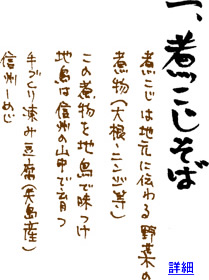 一、煮こじそば
煮こじは地元に伝わる野菜の
煮物(大根・ニンジン等)
この煮物を地鳥で味つけ
地鳥は信州の山中で育つ
手づくり凍み豆腐(矢島産)
信州しめじ
詳細